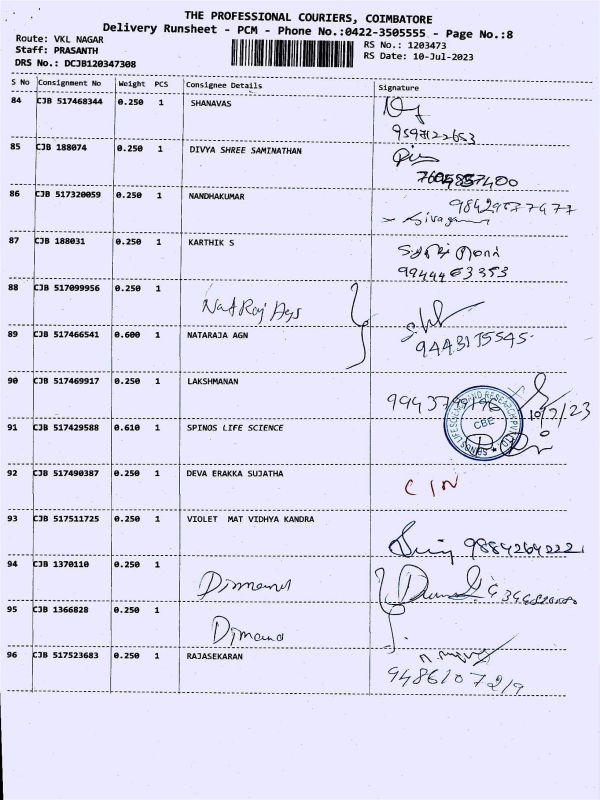 THE PROFESSIONAL COURIERS, COIMBATORE
Delivery Runsheet - PCM - Phone No.:0422-3505555 - Page No.:8
Route: VKL NAGAR
RS No.: 1203473
Staff: PRASANTH
RS Date: 10-Jul-2023
DRS No.: DCJB120347308
S No Consignment No Weight PCS Consignee Details Signature
84 CJB 517468344 0.250 1 SHANAVAS
9597122653
85 CJB 188074 0.250 1 DIVYA SHREE SAMINATHAN
86 CJB 517320059 0.250 1 NANDHAKUMAR
87 CJB 188031 0.250 1 KARTHIK S
9944463353
88 CJB 517099956 0.250 1 NatRaj Ags
89 CJB 517466541 0.600 1 NATARAJA AGN
90 CJB 517469917 0.250 1 LAKSHMANAN
10/7/23
CBE
91 CJB 517429588 0.610 1 SPINOS LIFE SCIENCE
92 CJB 517490387 0.250 1 DEVA ERAKKA SUJATHA
C/N
93 CJB 517511725 0.250 1 VIOLET MAT VIDHYA KANDRA
94 CJB 1370110 0.250 1
95 CJB 1366828 0.250 1
96 CJB 517523683 0.250 1 RAJASEKARAN
9486107219